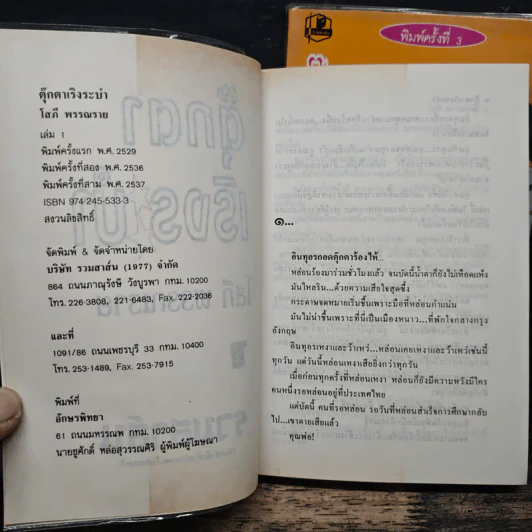 พิมพ์ครั้งที่ 3
ตุ๊กตาเริงระบำ
โสภี พรรณราย
เล่ม 1
พิมพ์ครั้งแรก พ.ศ. 2529
พิมพ์ครั้งที่สอง พ.ศ. 2536
พิมพ์ครั้งที่สาม พ.ศ. 2537
ISBN 974-245-533-3
สงวนลิขสิทธิ์
จัดพิมพ์ & จัดจำหน่ายโดย
บริษัท รวมสาส์น (1977) จำกัด
864 ถนนภาณุรังษี วังบูรพา กทม. 10200
โทร. 226-3808, 221-6483, Fax. 222-2036
และที่
1091/86 ถนนเพชรบุรี 33 กทม. 10400
โทร. 253-1489, Fax. 253-7915
พิมพ์ที่
อักษรพิทยา
61 ถนนมหรรณพ กทม. 10200
นายชูศักดิ์ หล่อสุวรรณศิริ ผู้พิมพ์ผู้โฆษณา
๑...
อินทุอรกอดตุ๊กตาร้องไห้...
หล่อนร้องมาร่วมชั่วโมงแล้ว จนบัดนี้น้ำตาก็ยังไม่เหือดแห้ง
มันไหลริน...ด้วยความเสียใจสุดซึ้ง
กระดาษจดหมายเริ่มชื้นเพราะมือที่หล่อนกำแน่น
มันไม่น่าชื้นเพราะที่นี่เป็นเมืองหนาว...ที่พักใจกลางกรุง
อังกฤษ
อินทุอรเหงาและว้าเหว่...หล่อนเคยเหงาและว้าเหว่เช่นนี้
ทุกวัน แต่วันนี้หล่อนเหงาเสียยิ่งกว่าทุกวัน
เมื่อก่อนทุกครั้งที่หล่อนเหงา หล่อนก็ยังมีความหวังมีใคร
คนหนึ่งรอหล่อนอยู่ที่ประเทศไทย
แต่บัดนี้ คนที่รอหล่อน รอวันที่หล่อนสำเร็จการศึกษากลับ
ไป...เขาตายเสียแล้ว
ทุณพ่อ!